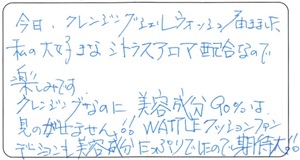 今日、クレンジングジェルウォッシュ届きました
私の大好きなシトラスアロマ配合なので
楽しみです。
クレンジングなのに美容成分90%は、
見のがせません!! WATTLEクッションファン
デーションも美容成分